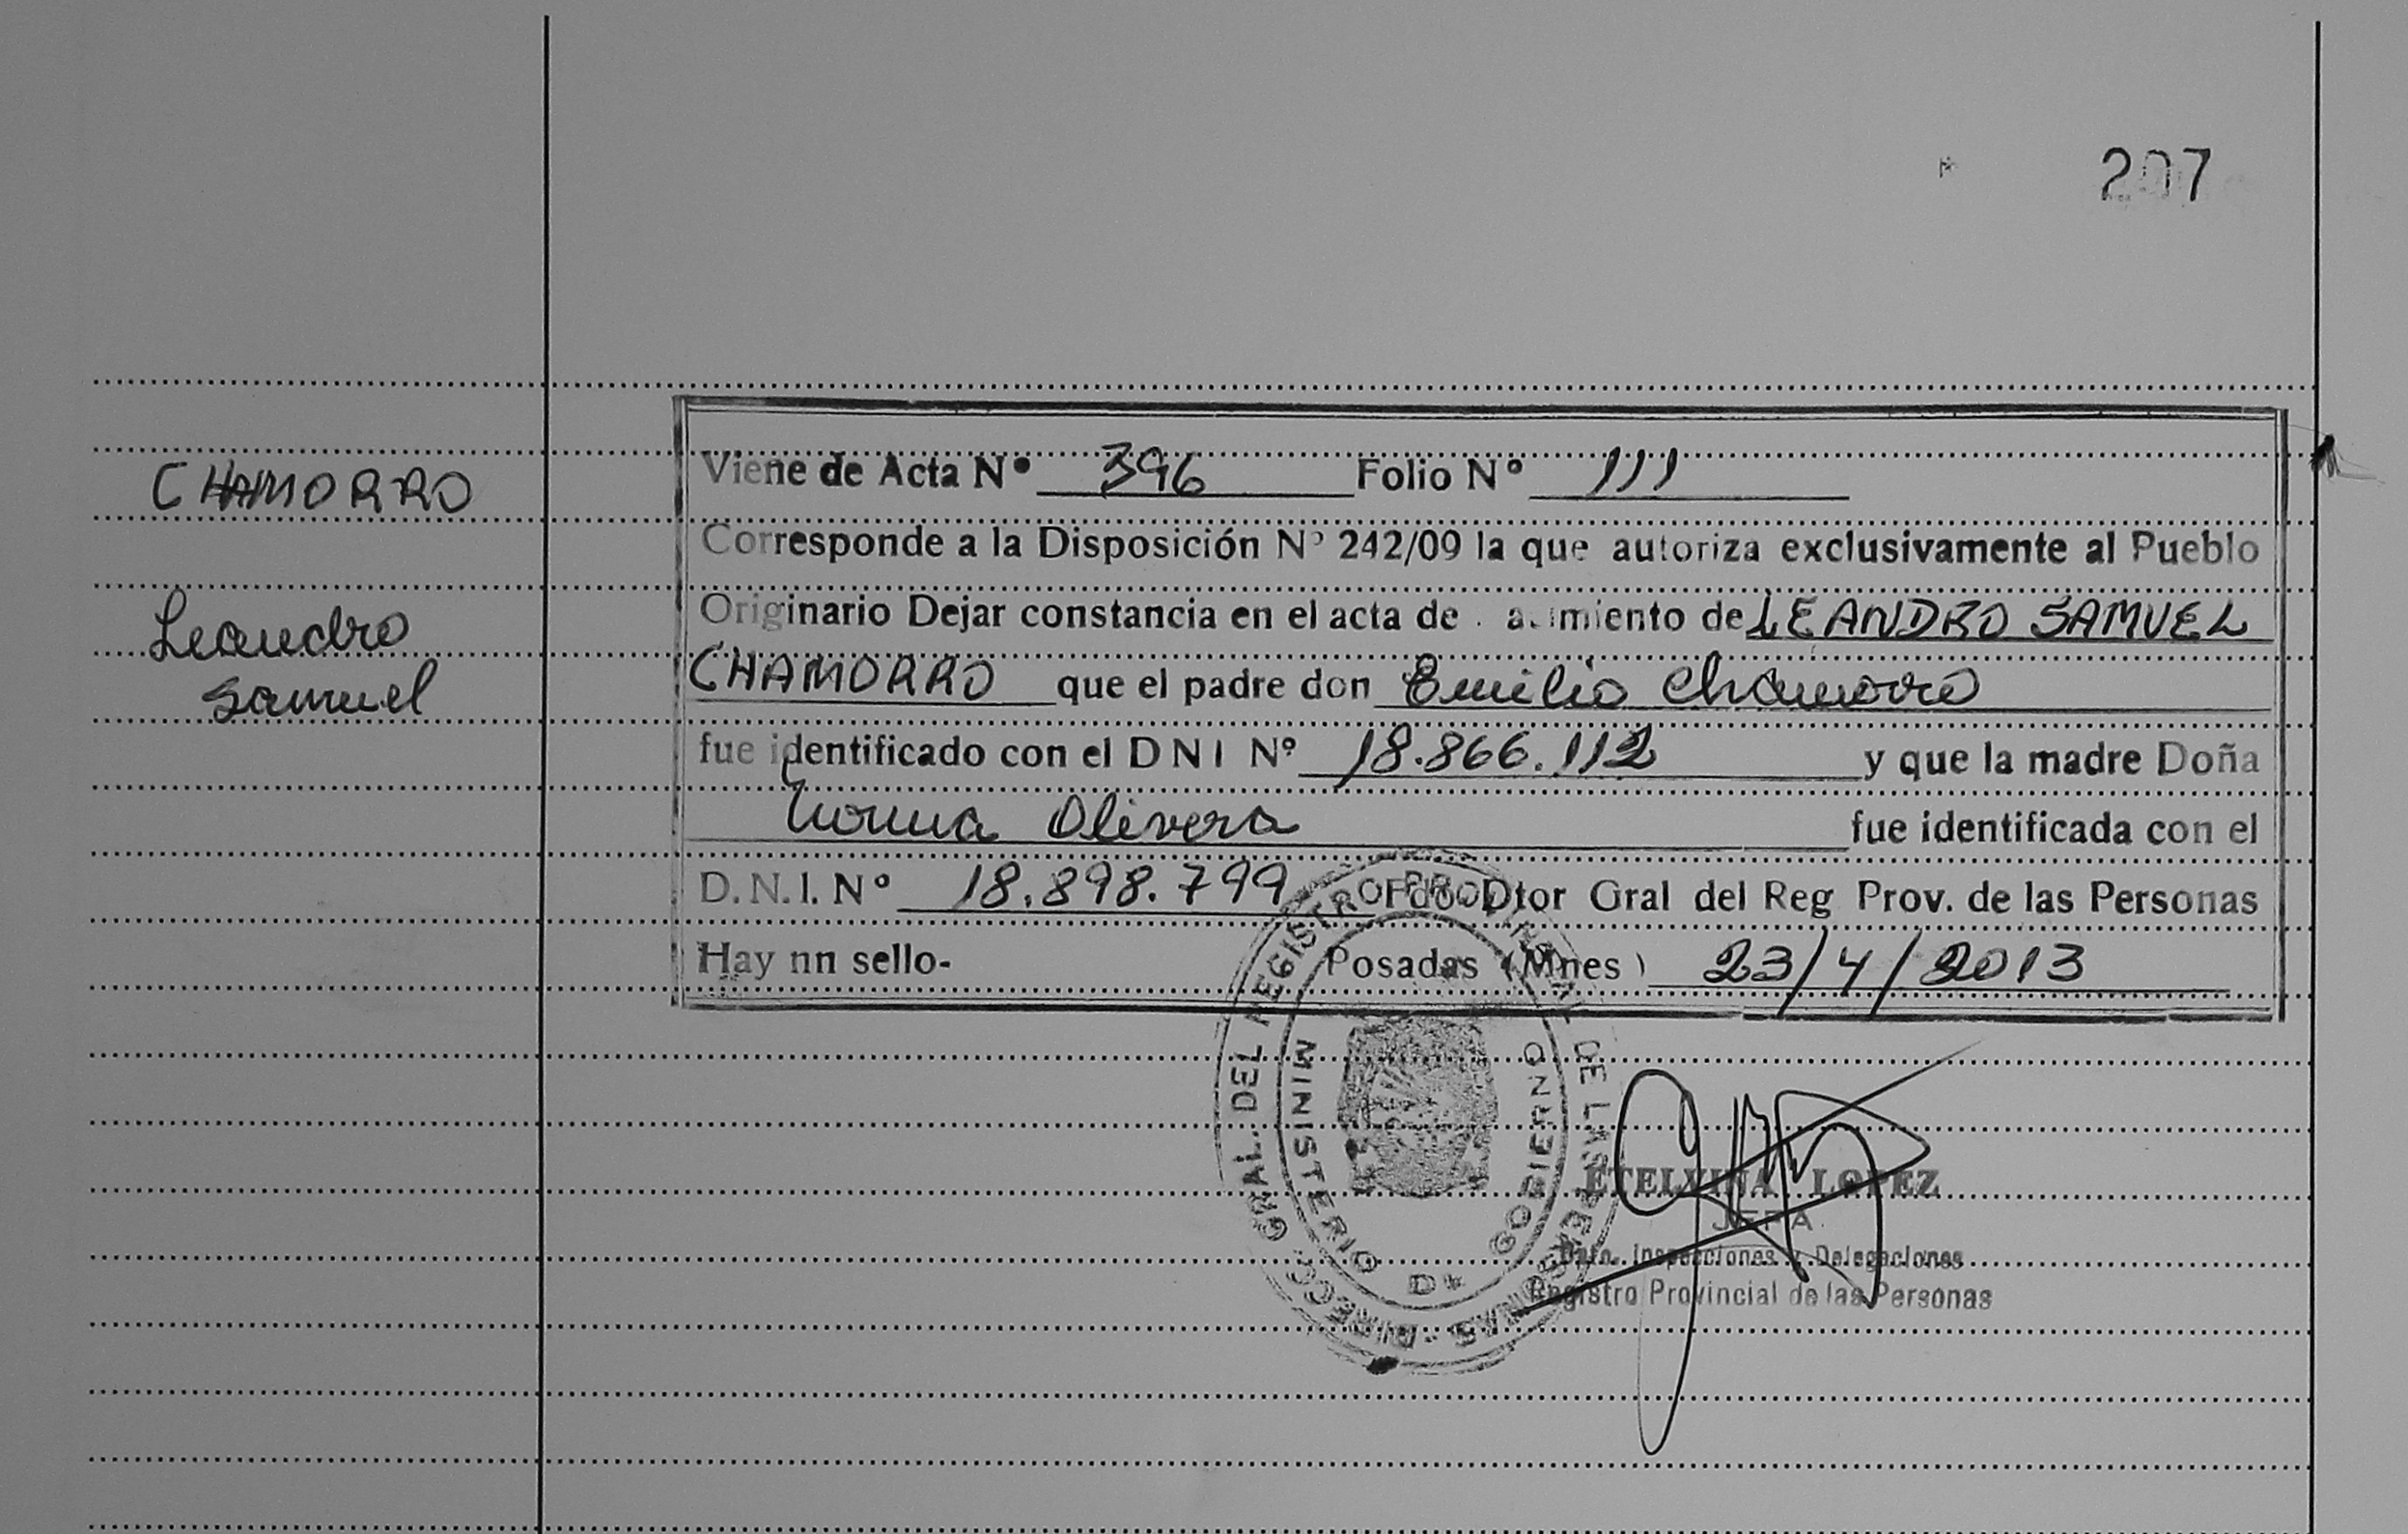 207
CHAMORRO
Leandro
Samuel
Viene de Acta Nº 396 Folio Nº 111
Corresponde a la Disposición Nº 242/09 la que autoriza exclusivamente al Pueblo
Originario Dejar constancia en el acta de nacimiento de LEANDRO SAMUEL
CHAMORRO que el padre don Emilio Chamorro
fue identificado con el DNI Nº 18.866.112 y que la madre Doña
Norma Olivera fue identificada con el
D.N.I. Nº 18.898.799 Fdo Dtor Gral del Reg Prov. de las Personas
Hay nn sello- Posadas (Mnes) 23/4/2013
DIRECC. GRAL. DEL REGISTRO PROVINCIAL DE LAS PERSONAS
MINISTERIO DE GOBIERNO
ETELVINA LOPEZ
JEFA
Dpto. Inspecciones y Delegaciones
Registro Provincial de las Personas